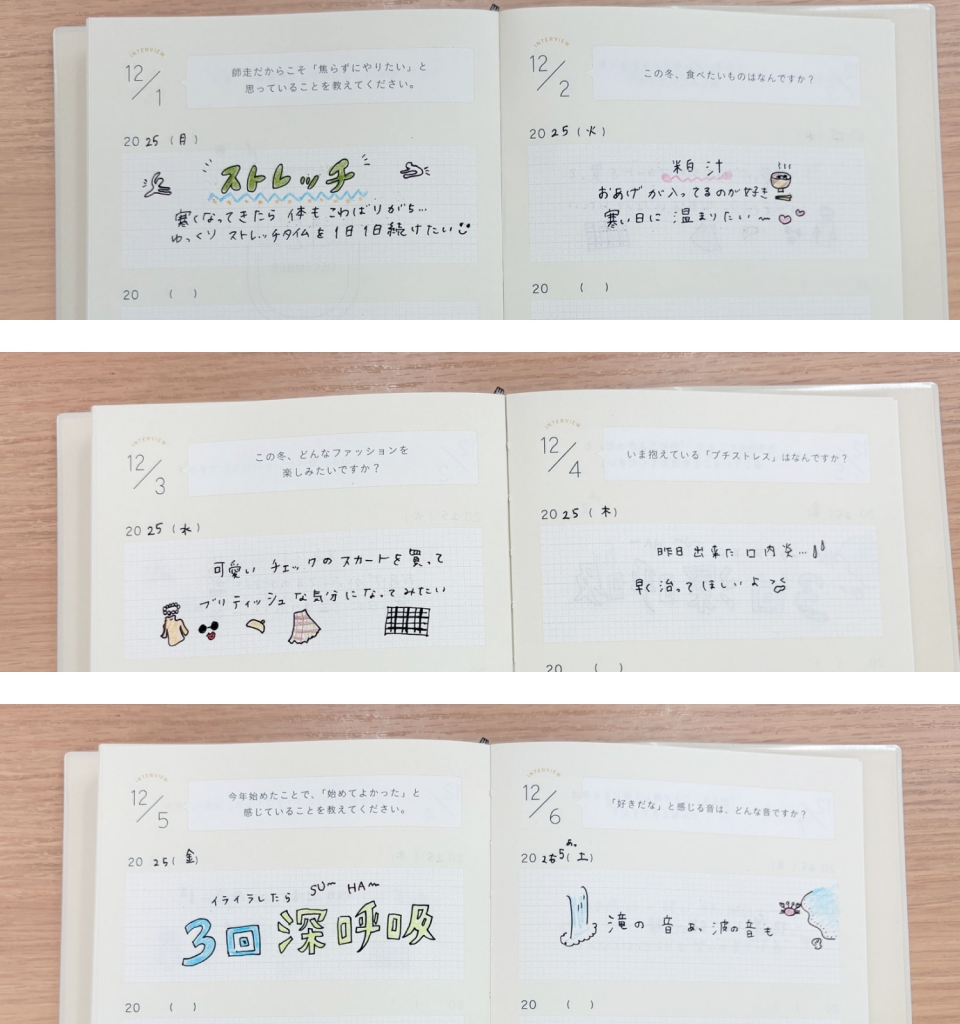 INTERVIEW
12/1
師走だからこそ「焦らずにやりたい」と
思っていることを教えてください。
2025(月)
ストレッチ
寒くなってきたら 体も こわばりがち…
ゆっくり ストレッチタイムを 1日1日続けたい
20 ( )
INTERVIEW
12/2
この冬、食べたいものはなんですか?
2025(火)
粕汁
おあげが入ってるのが好き
寒い日に 温まりたい〜
20 ( )
INTERVIEW
12/3
この冬、どんなファッションを
楽しみたいですか?
2025(水)
可愛い チェックの スカートを 買って
ブリティッシュな気分になってみたい
INTERVIEW
12/4
いま抱えている「プチストレス」はなんですか?
2025(木)
昨日出来た口内炎…
早く治ってほしいよ
20 ( )
INTERVIEW
12/5
今年始めたことで、「始めてよかった」と
感じていることを教えてください。
2025(金)
イライラしたら SU〜 HA〜
3回深呼吸
20 ( )
INTERVIEW
12/6
「好きだな」と感じる音は、どんな音ですか?
(土)
滝の音 あ、波の音も
20 ( )